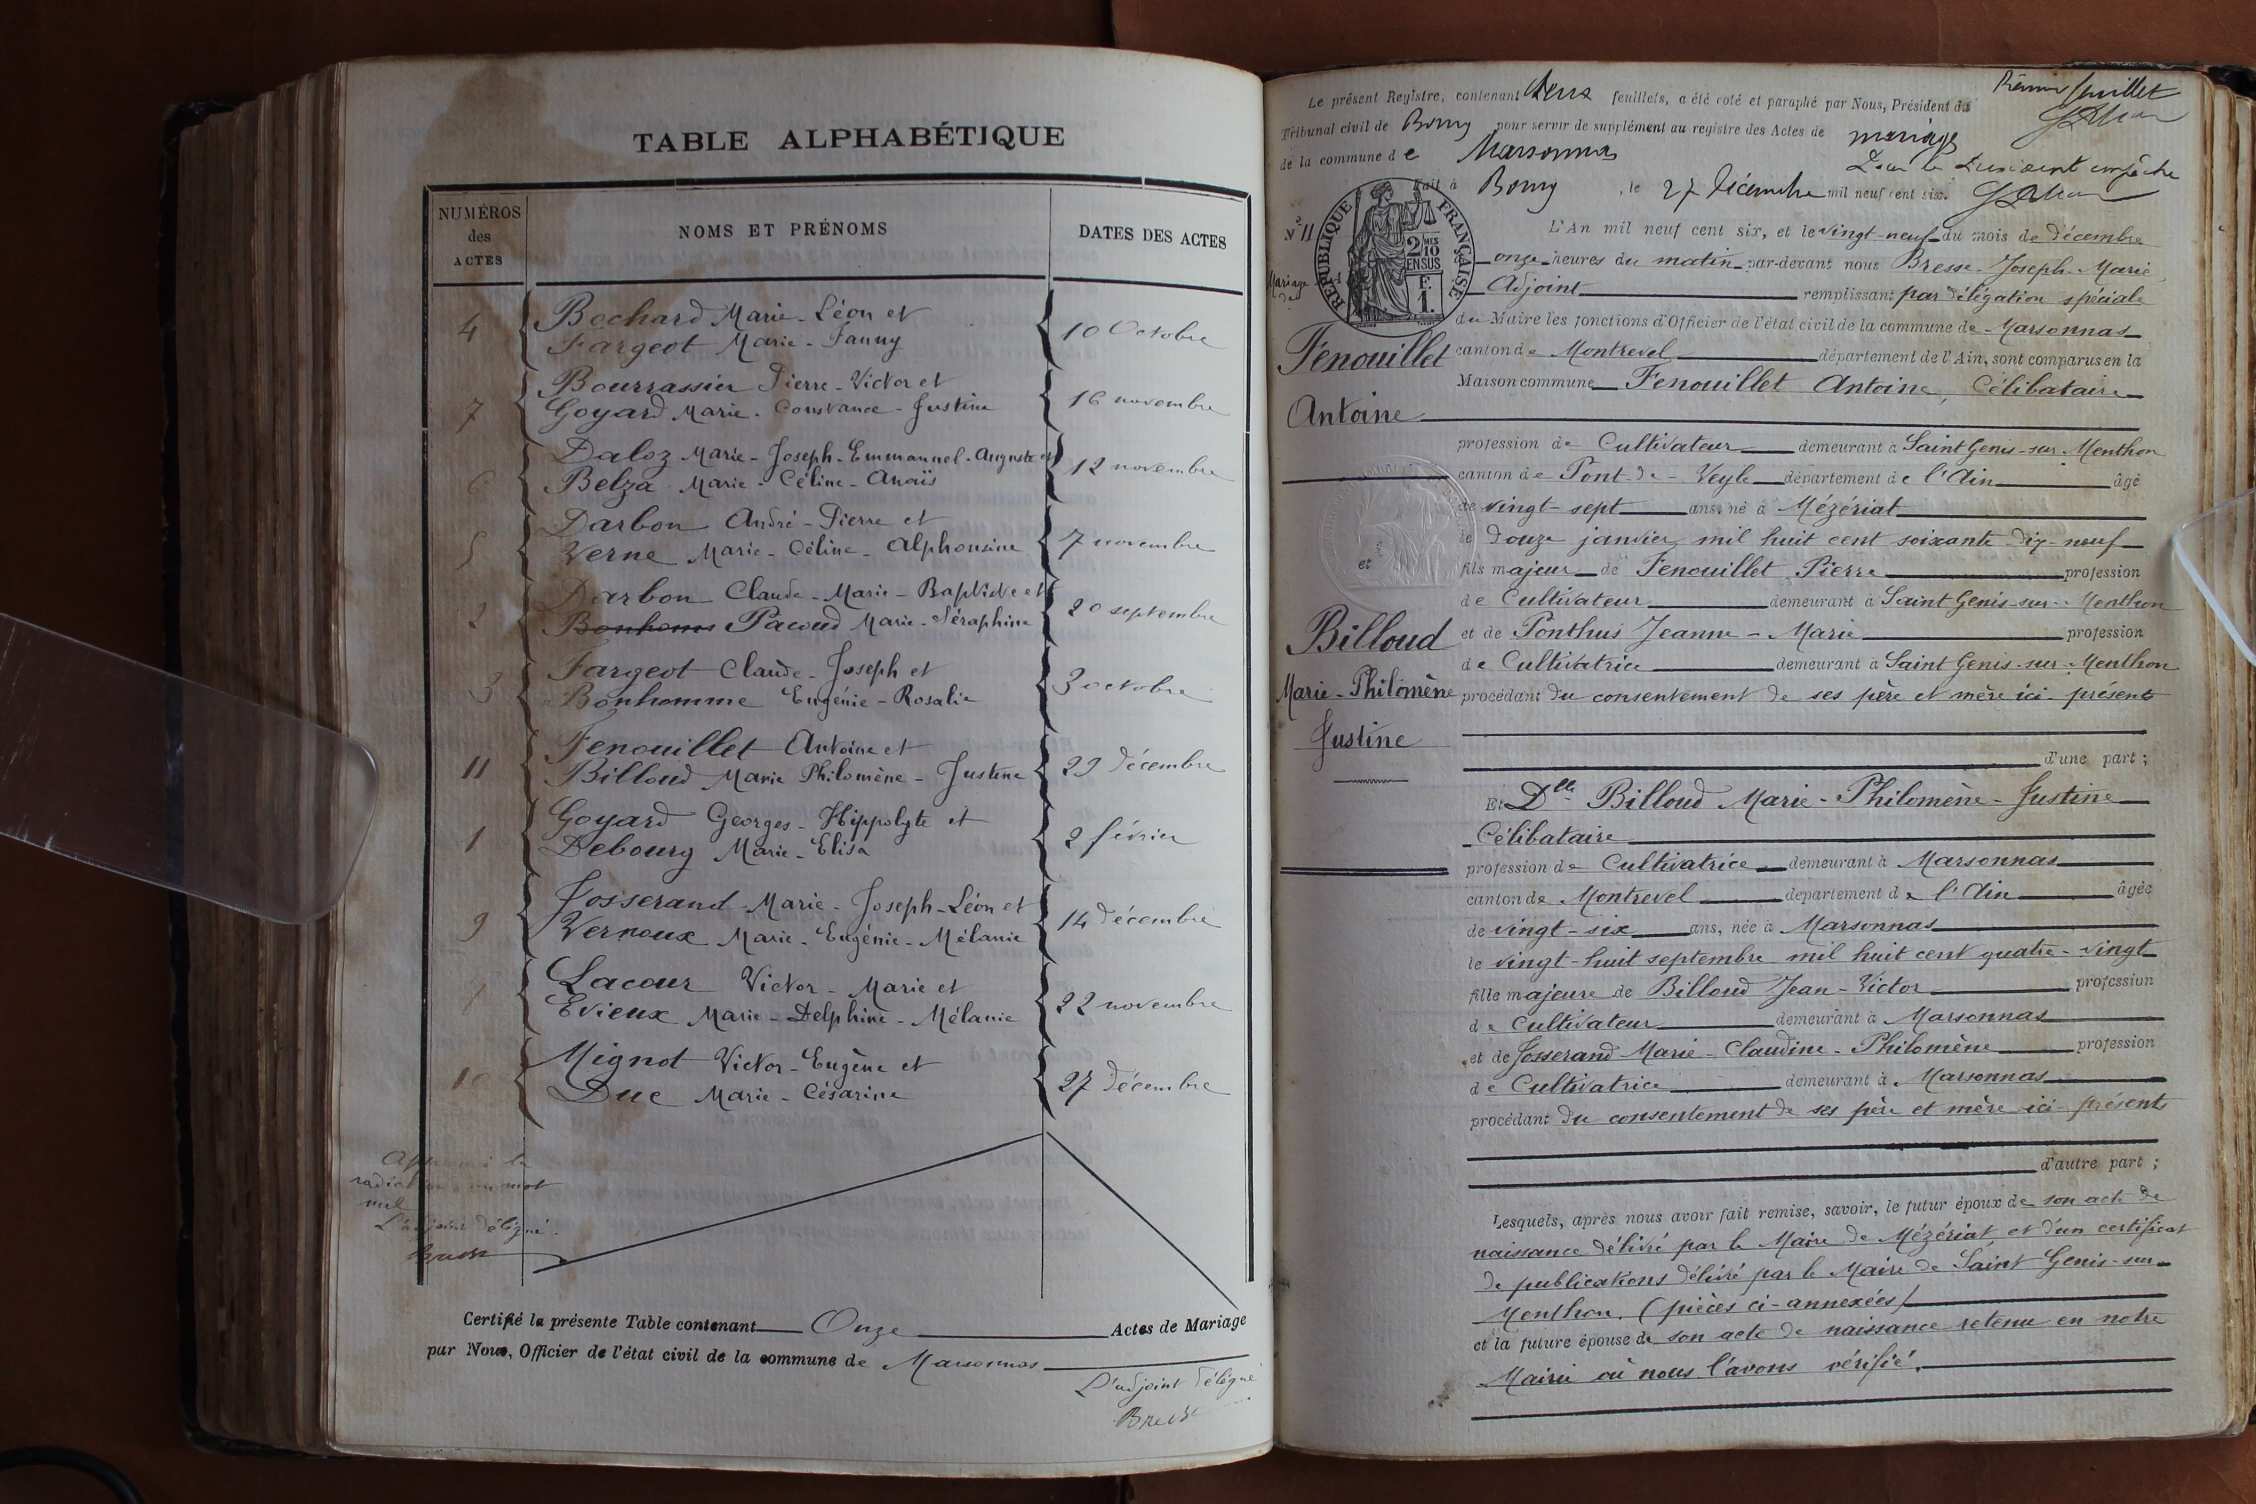 TABLE ALPHABÉTIQUE
NUMÉROS des ACTES
NOMS ET PRÉNOMS
DATES DES ACTES
4 Bochard Marie-Léon et
Fargeot Marie-Fanny 10 Octobre
7 Bourrassier Pierre-Victor et
Goyard Marie-Constance-Justine 16 novembre
6 Daloz Marie-Joseph-Emmanuel-Auguste et
Belza Marie-Céline-Anaïs 12 novembre
5 Darbon André-Pierre et
Verne Marie-Céline-Alphonsine 7 novembre
2 Darbon Claude-Marie-Baptiste et
Bonhomme Pacoud Marie-Séraphine 20 septembre
3 Fargeot Claude-Joseph et
Bonhomme Eugénie-Rosalie 3 octobre
11 Fenouillet Antoine et
Billoud Marie Philomène-Justine 29 décembre
1 Goyard Georges-Hippolyte et
Debourg Marie-Elisa 2 février
9 Josserand Marie-Joseph-Léon et
Vernoux Marie-Eugénie-Mélanie 14 décembre
Lacour Victor-Marie et
Evieux Marie-Delphine-Mélanie 22 novembre
10 Mignot Victor-Eugène et
Duc Marie-Césarine 27 décembre
la
mot
nul
L'adjoint délégué.
Certifié la présente Table contenant Onze Actes de Mariage
par Nous, Officier de l'état civil de la commune de Marsonnas
L'adjoint délégué
Bresse
Premier feuillet
Le présent Registre, contenant deux feuillets, a été coté et paraphé par Nous, Président du
Tribunal civil de Bourg pour servir de supplément au registre des Actes de mariage
de la commune de Marsonnas
Pour le Président empêché
Fait à Bourg, le 27 décembre mil neuf cent six.
RÉPUBLIQUE FRANÇAISE
2 MES 10 EN SUS
F. 1.
N° 11
Mariage
de
Fenouillet
Antoine
et
Billoud
Marie-Philomène
Justine
L'An mil neuf cent six, et le vingt-neuf du mois de décembre
onze heures du matin par-devant nous Bresse-Joseph-Marie
Adjoint remplissant par délégation spéciale
du Maire les fonctions d'Officier de l'état civil de la commune de Marsonnas
canton de Montrevel département de l'Ain, sont comparus en la
Maison commune Fenouillet Antoine, Célibataire
profession de Cultivateur demeurant à Saint Genis-sur-Menthon
canton de Pont-de-Veyle département de l'Ain âgé
de vingt-sept ans, né à Mézériat
le douze janvier mil huit cent soixante dix-neuf
fils majeur de Fenouillet Pierre profession
de Cultivateur demeurant à Saint Genis-sur-Menthon
et de Ponthus Jeanne-Marie profession
de Cultivatrice demeurant à Saint Genis-sur-Menthon
procédant du consentement de ses père et mère ici-présents
d'une part ;
Et Dlle Billoud Marie-Philomène-Justine
Célibataire
profession de Cultivatrice demeurant à Marsonnas
canton de Montrevel département de l'Ain âgée
de vingt-six ans, née à Marsonnas
le vingt-huit septembre mil huit cent quatre-vingt
fille majeure de Billoud Jean-Victor profession
de Cultivateur demeurant à Marsonnas
et de Josserand Marie-Claudine-Philomène profession
de Cultivatrice demeurant à Marsonnas
procédant du consentement de ses père et mère ici-présents
d'autre part ;
Lesquels, après nous avoir fait remise, savoir, le futur époux de son acte de
naissance délivré par le Maire de Mézériat, et d'un certificat
de publications délivré par le Maire de Saint Genis-sur-
Menthon. (pièces ci-annexées)
et la future épouse de son acte de naissance retenu en notre
Mairie où nous l'avons vérifié.